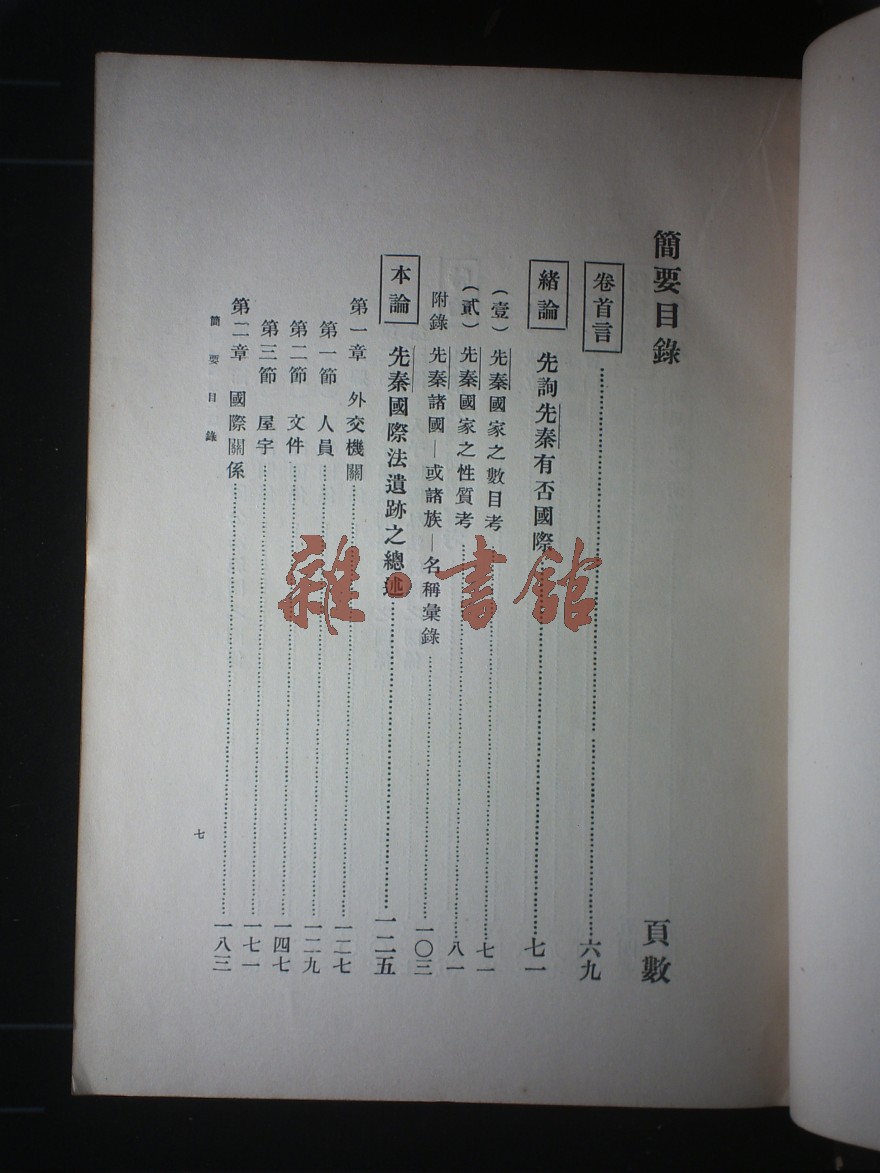 簡要目錄 頁數
卷首言 六九
緒論 先詢先秦有否國際 七一
(壹) 先秦國家之數目考 七一
(貳) 先秦國家之性質考 八一
附錄 先秦諸國—或諸族—名稱彙錄 一〇三
本論 先秦國際法遺跡之總述 一二五
第一章 外交機關 一二七
第一節 人員 一二九
第二節 文件 一四七
第三節 屋宇 一七一
第二章 國際關係 一八三
簡要目錄 七
雜·書館